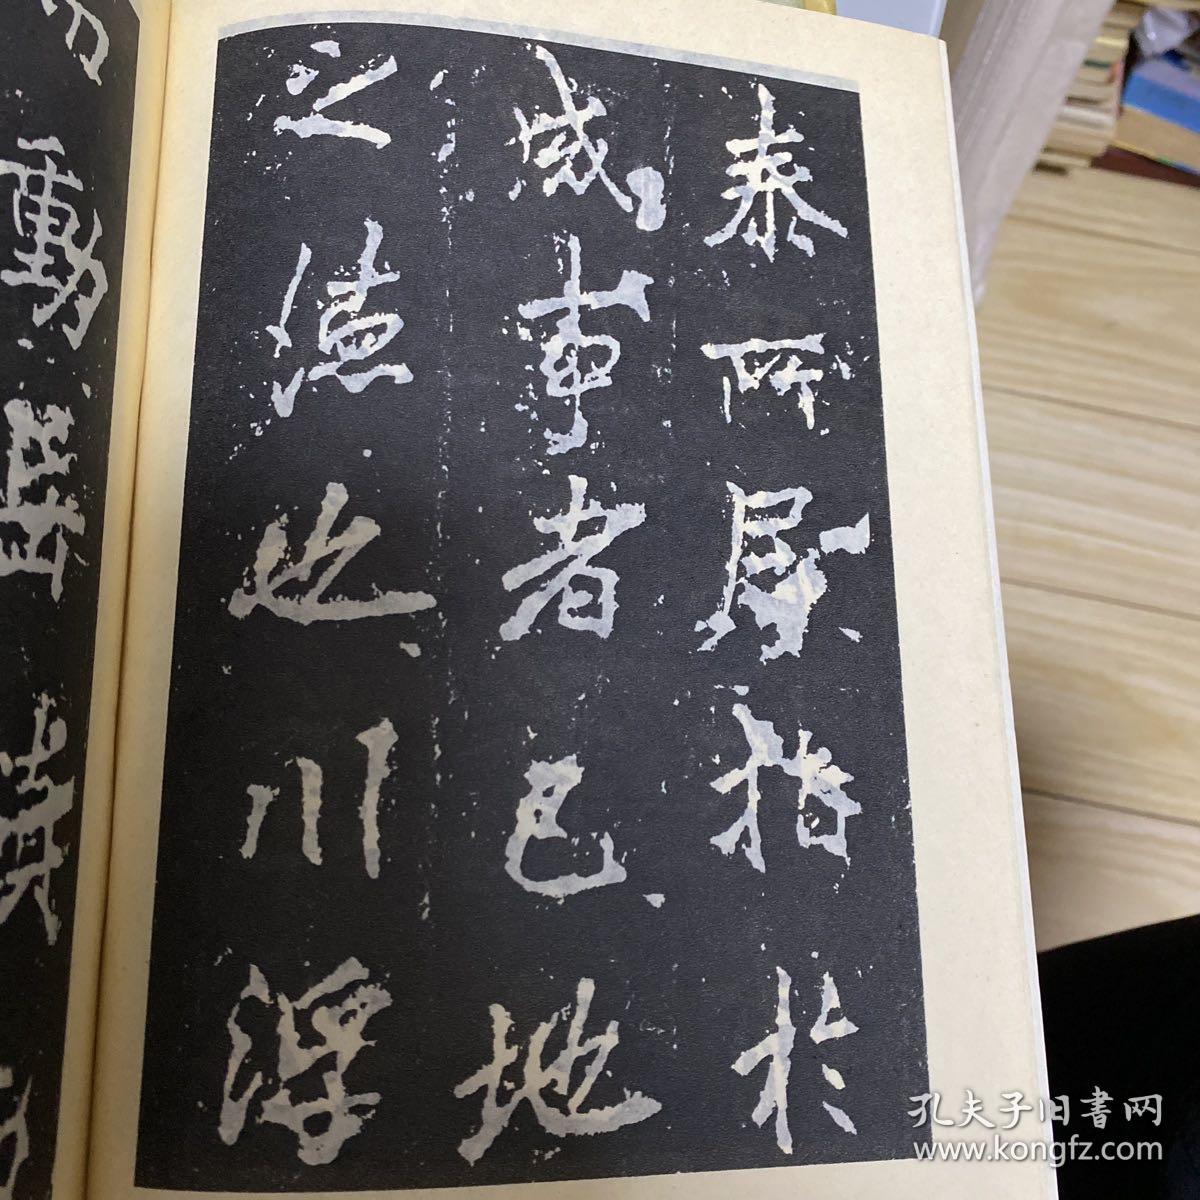 泰所居指於
成事者已地
之德也川浮
動岳
孔夫子旧書网
www.kongfz.com